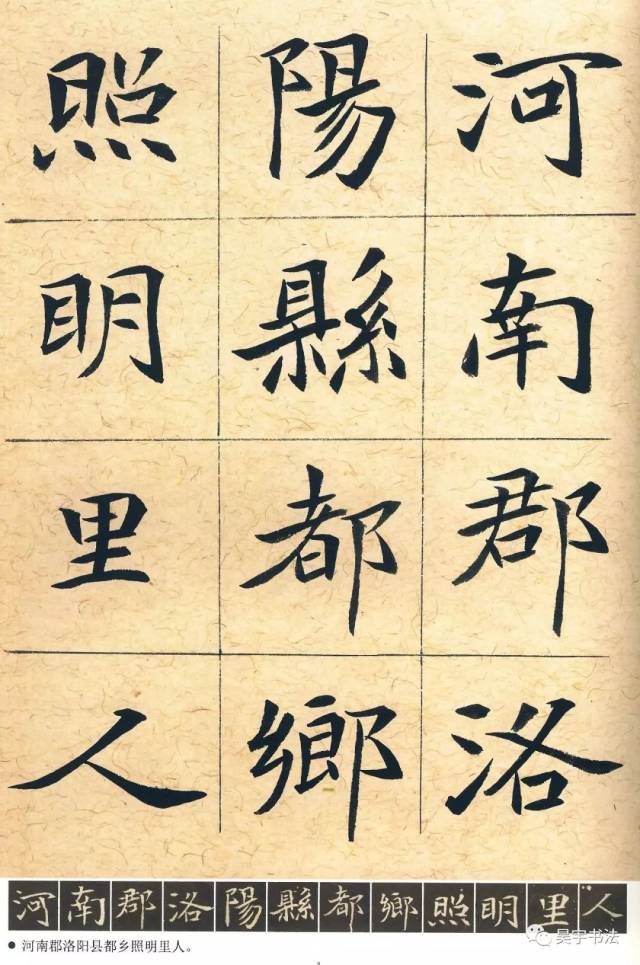 河南郡洛
陽縣都鄉
照明里人
河南郡洛陽縣都鄉照明里人
● 河南郡洛阳县都乡照明里人。
吴宇书法